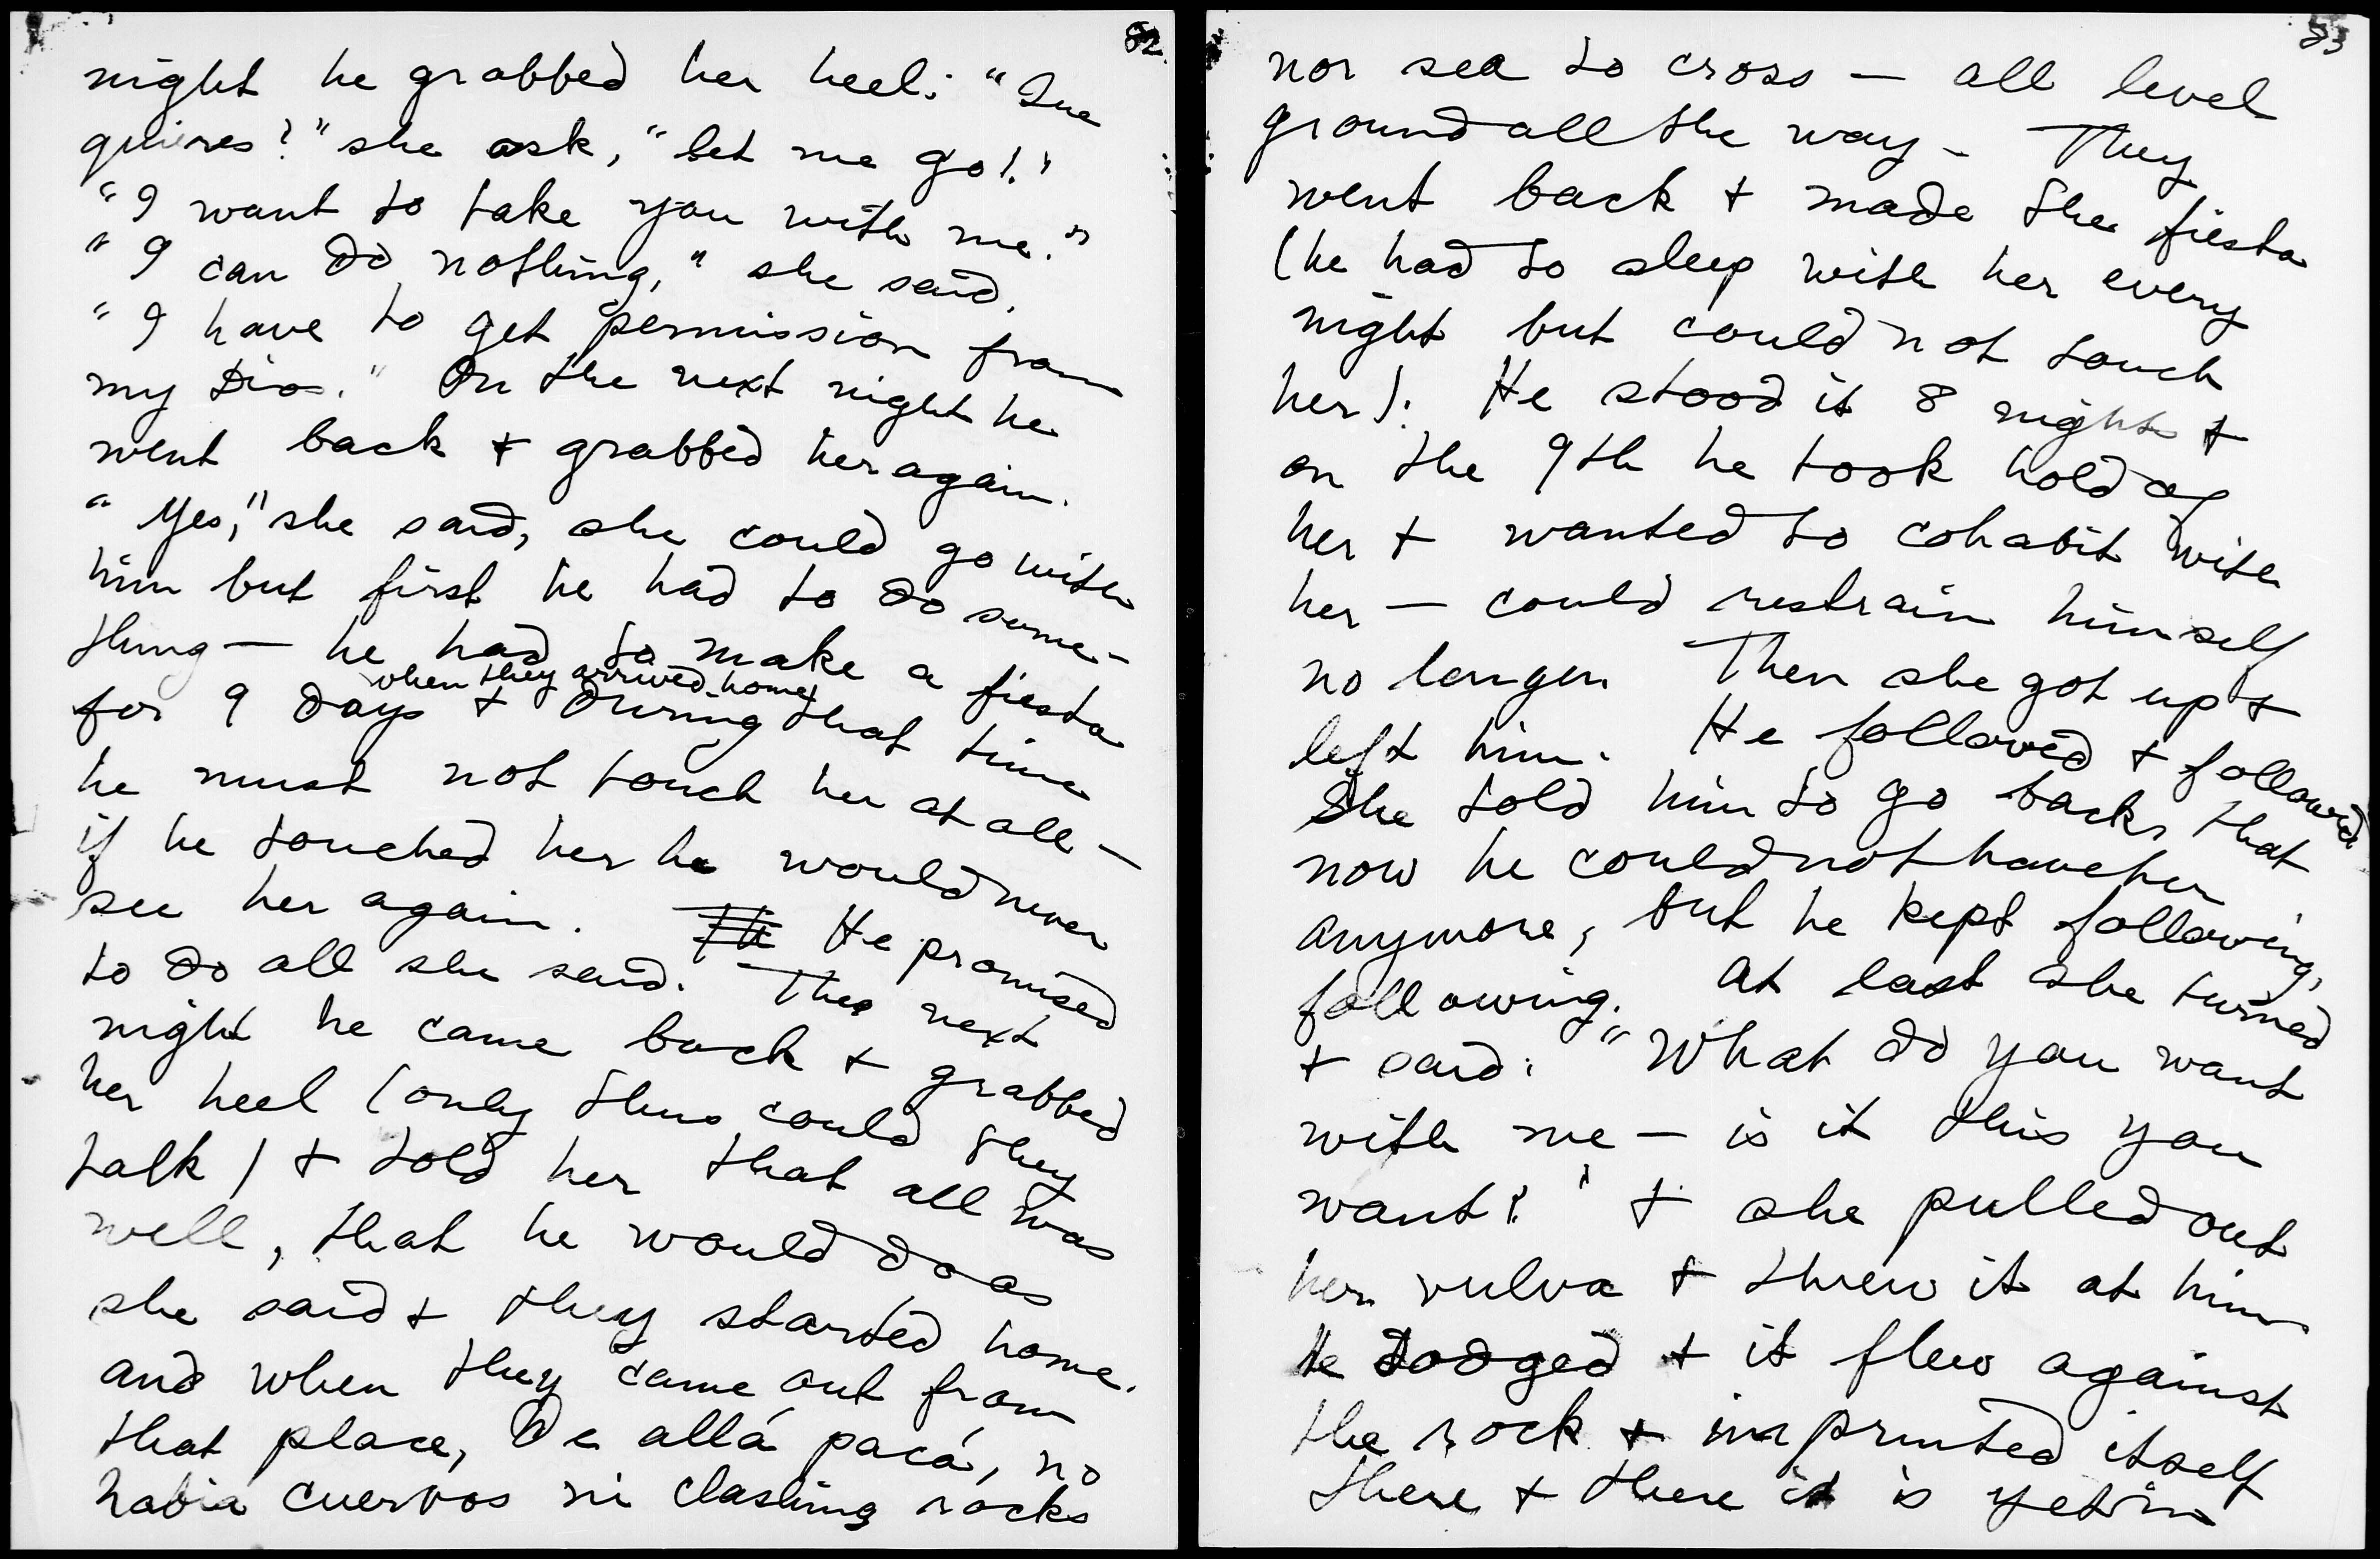 82
night he grabbed her heel: "Que
quieres?" she ask, "let me go!"
"I want to take you with me."
"I can do nothing," she said.
"I have to get permission from
my Dios." On the next night he
went back + grabbed her again.
"Yes," she said, she could go with
him but first he had to do some-
thing — he had to make a fiesta
when they arrived home
for 9 days + during that time
he must not touch her at all —
if he touched her he would never
see her again. He He promised
to do all she said. The next
night he came back + grabbed
her heel (only thus could they
talk) + told her that all was
well, that he would do as
she said + they started home.
and when they came out from
that place, De allá pacá, no
habia cuervos ni clashing rocks
83
nor sea to cross — all level
ground all the way - They
went back + made the fiesta
(he had to sleep with her every
night but could not touch
her). He stood it 8 nights +
on the 9th he took hold of
her + wanted to cohabit with
her — could restrain himself
no longer. Then she got up +
left him. He followed + followed.
She told him to go back, that
now he could not have her
anymore, but he kept following,
following. At last she turned
+ said: "What do you want
with me — is it this you
want?" + she pulled out
her vulva + threw it at him
He dodged + it flew against
the rock + imprinted itself
there + there it is yet in